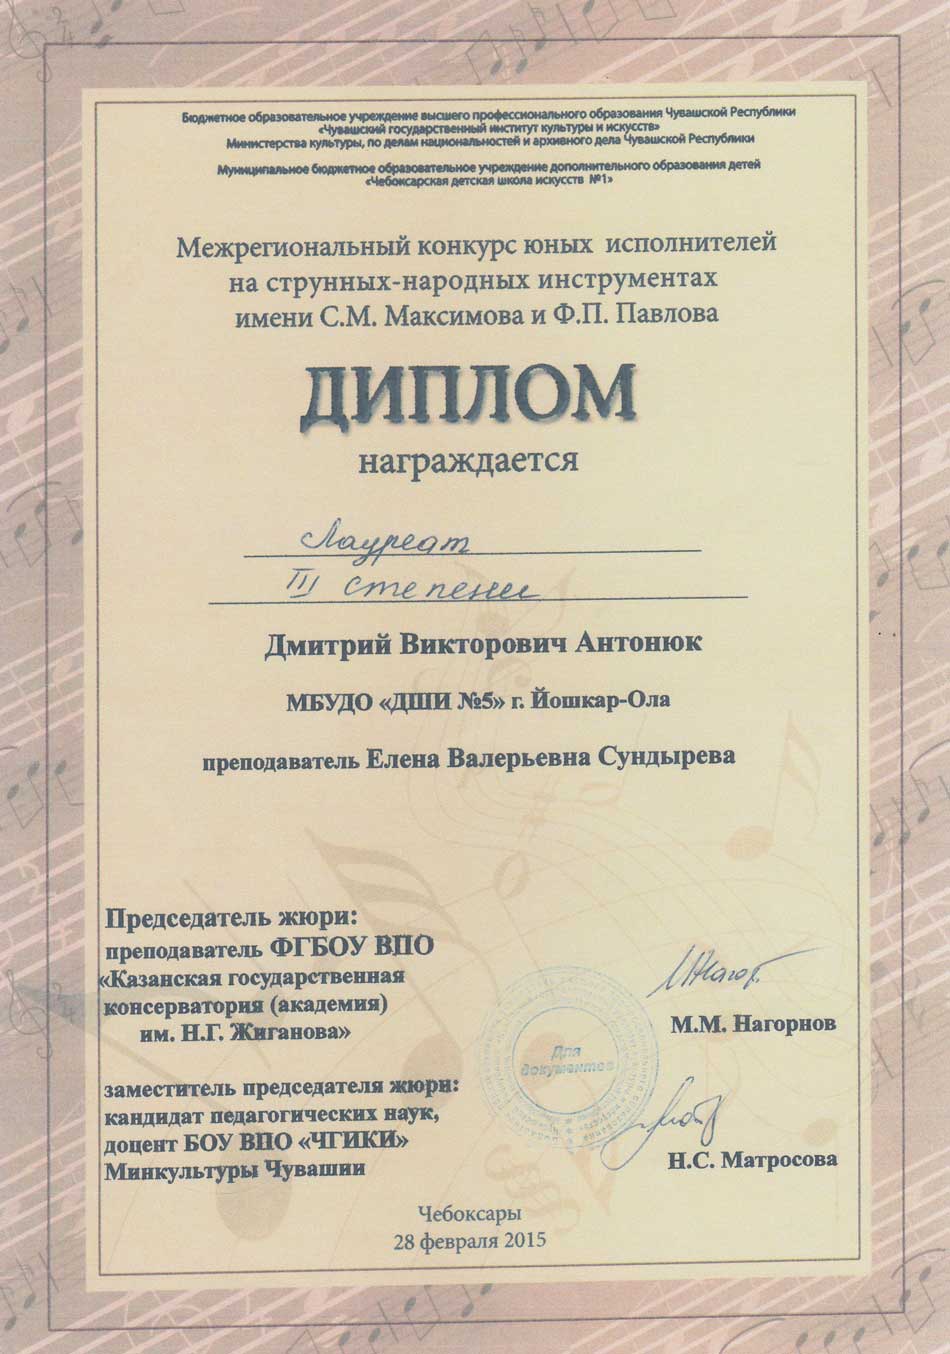 Бюджетное образовательное учреждение высшего профессионального образования Чувашской Республики
«Чувашский государственный институт культуры и искусств»
Министерства культуры, по делам национальностей и архивного дела Чувашской Республики
Муниципальное бюджетное образовательное учреждение дополнительного образования детей
«Чебоксарская детская школа искусств №1»
Межрегиональный конкурс юных исполнителей
на струнных-народных инструментах
имени С.М. Максимова и Ф.П. Павлова
ДИПЛОМ
награждается
Лауреат
III степени
Дмитрий Викторович Антонюк
МБУДО «ДШИ №5» г. Йошкар-Ола
преподаватель Елена Валерьевна Сундырева
Председатель жюри:
преподаватель ФГБОУ ВПО
«Казанская государственная
консерватория (академия)
им. Н.Г. Жиганова»
М.М. Нагорнов
Для
документов
заместитель председателя жюри:
кандидат педагогических наук,
доцент БОУ ВПО «ЧГИКИ»
Минкультуры Чувашии
Н.С. Матросова
Чебоксары
28 февраля 2015